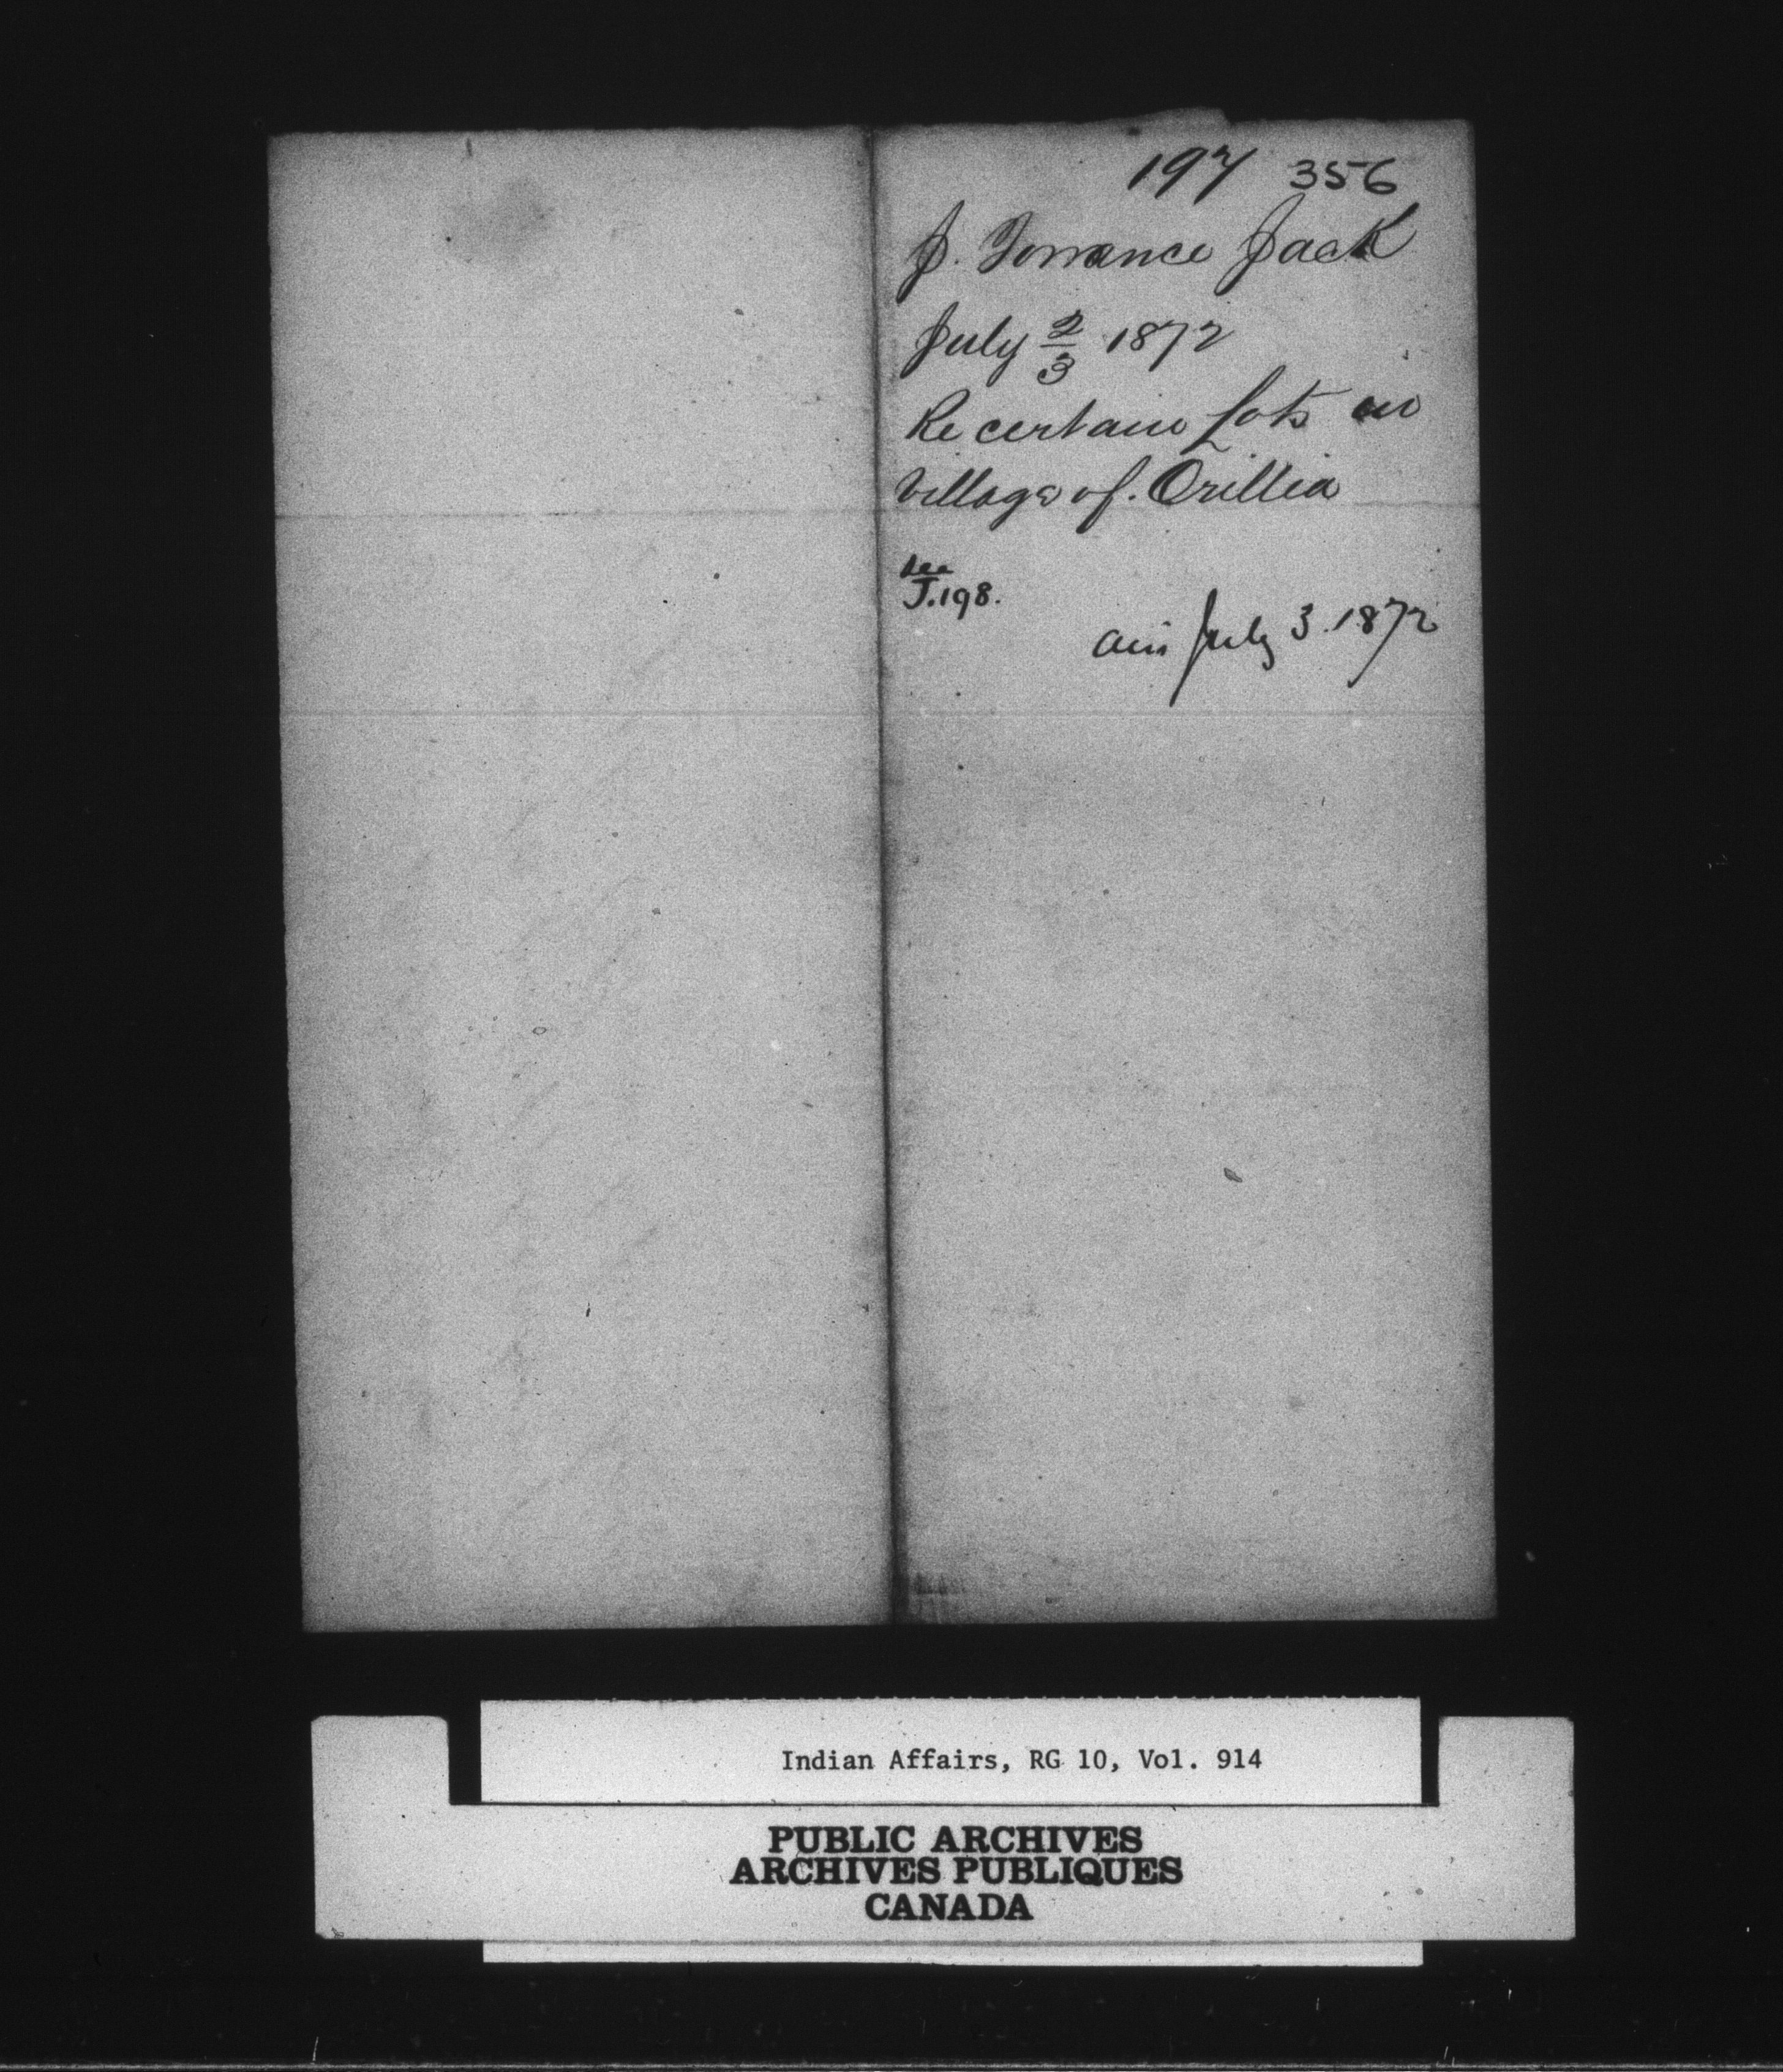 197 356
J. Torrance Jack
July 2/3 1872
Re certain Lots in
Village of. Orillia
see
J.198.
July 3. 1872
Indian Affairs, RG 10, Vol. 914
PUBLIC ARCHIVES
ARCHIVES PUBLIQUES
CANADA